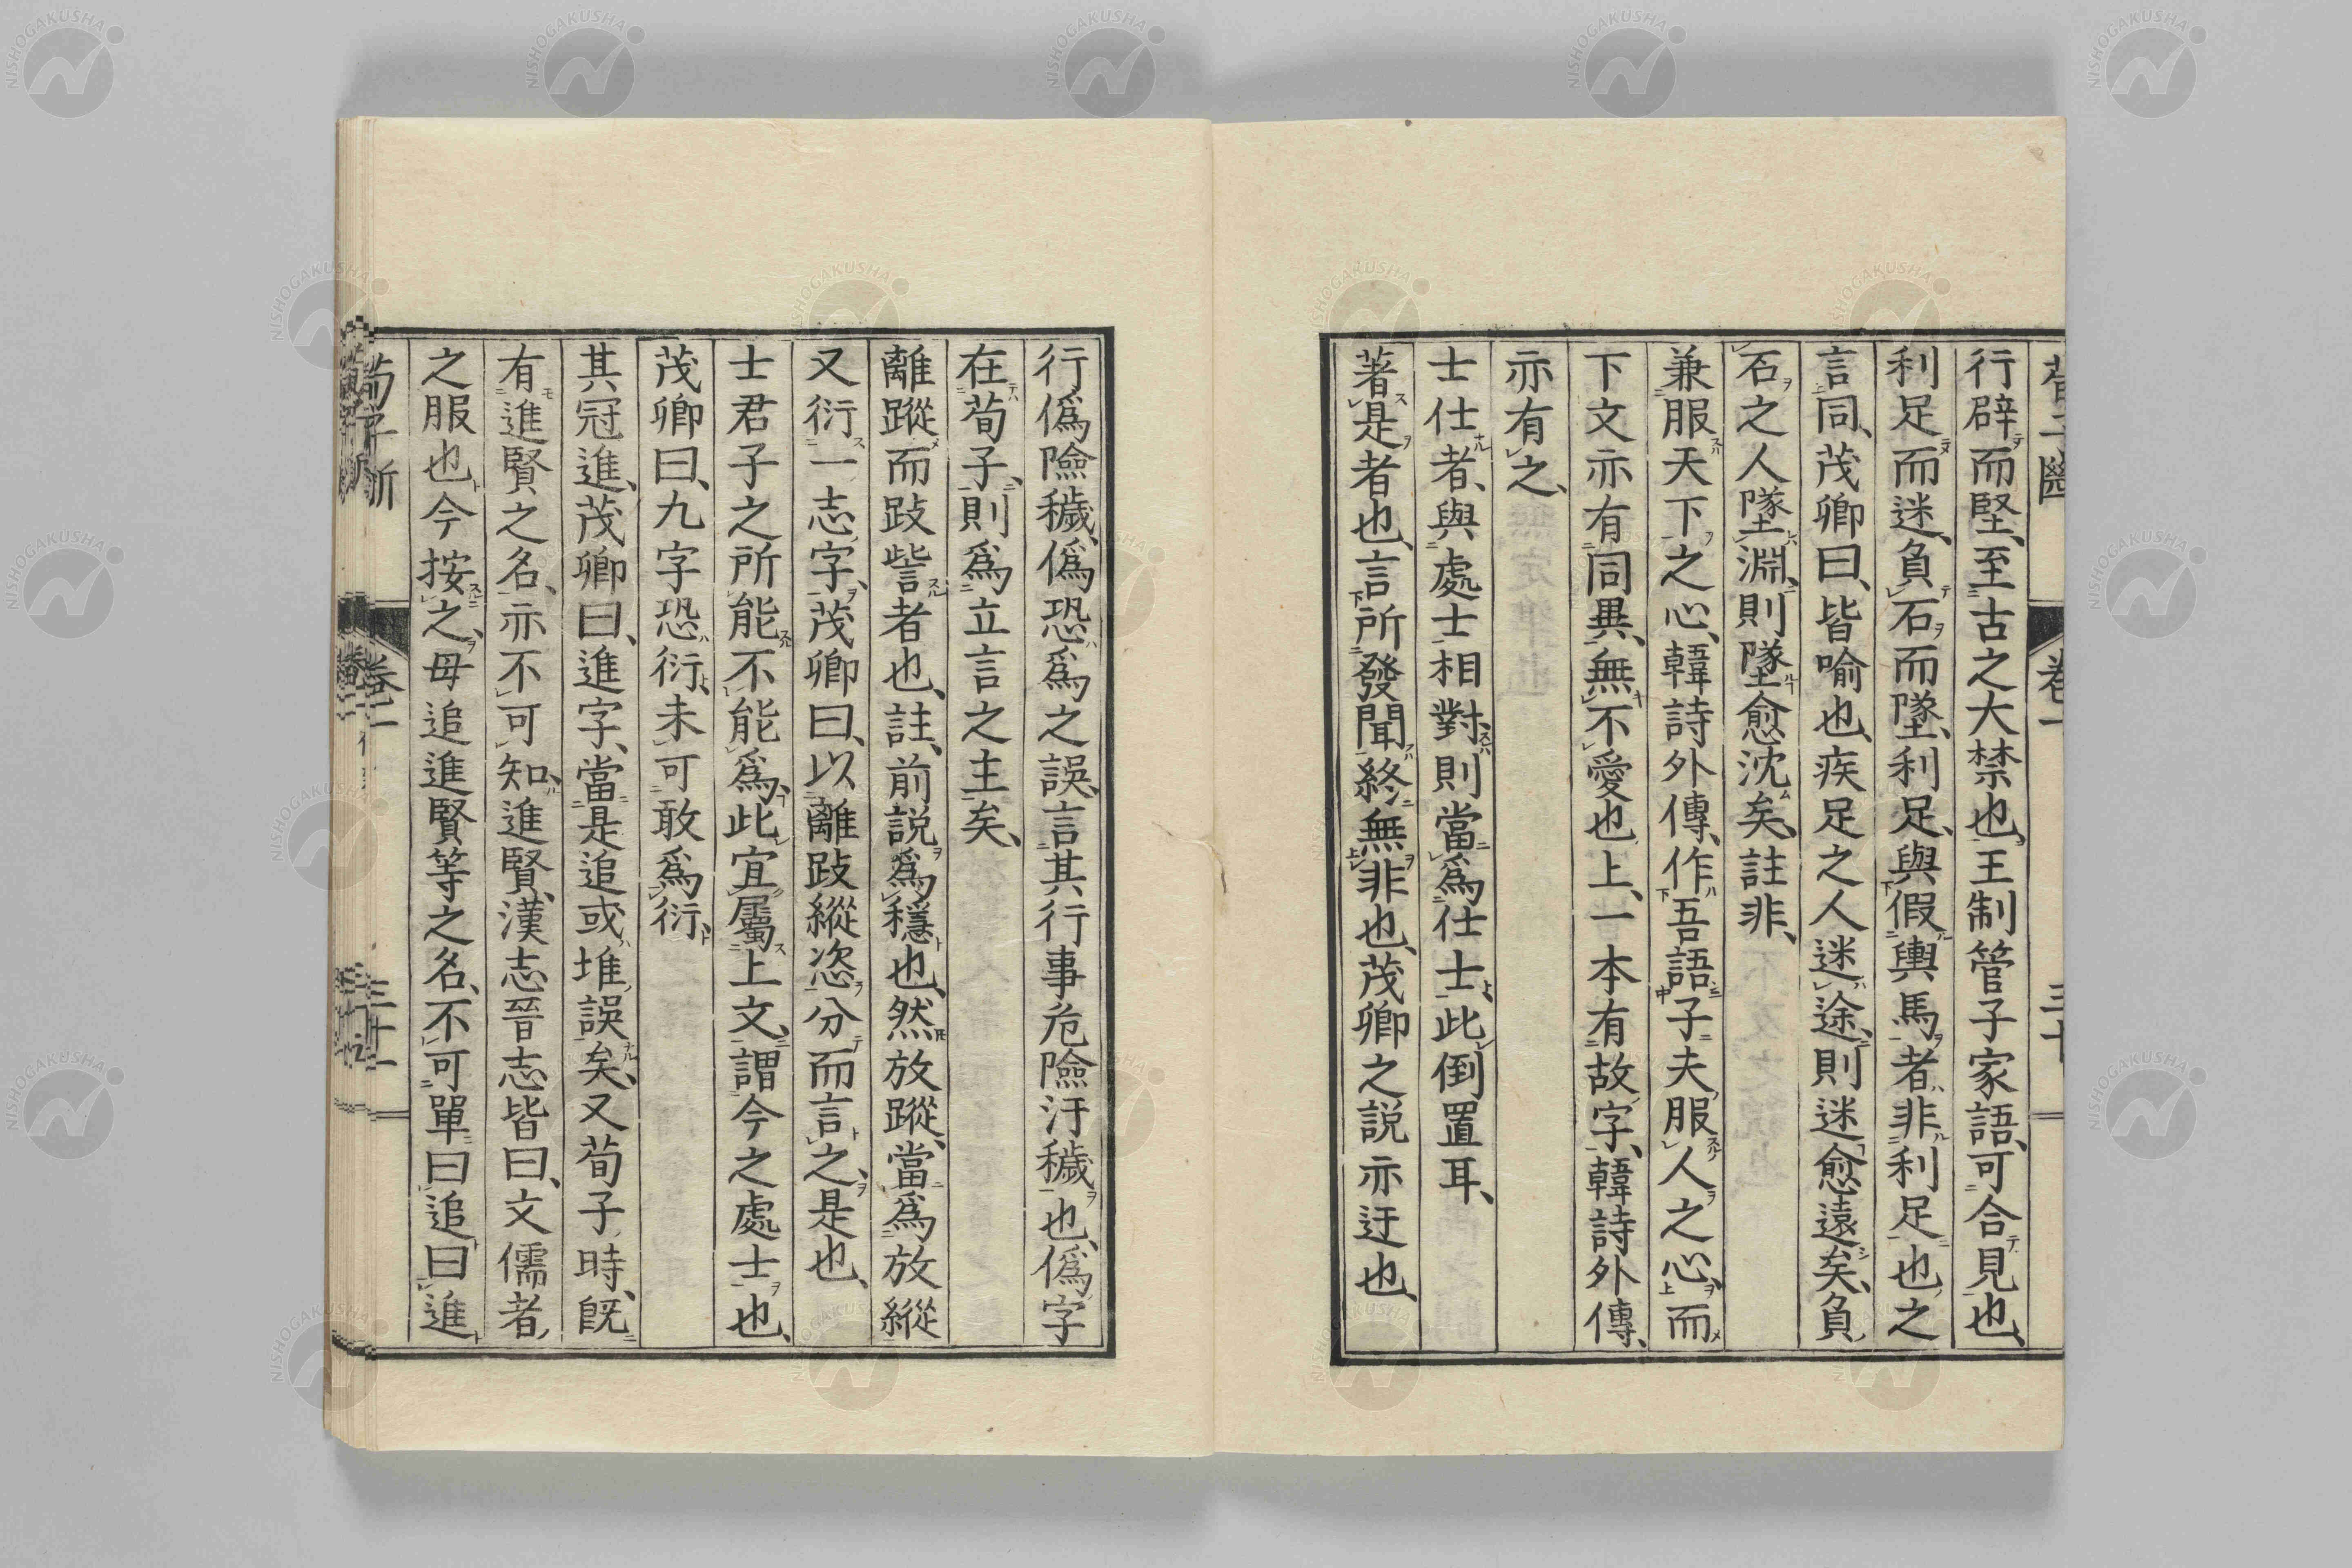 行辟而堅、至古之大禁也、王制管子家語、可合見也、
利足而迷、負石而墜、利足、與假輿馬者、非利足也、之
言同、茂卿曰、皆喻也、疾足之人迷途、則迷愈遠矣、負
石之人墜淵、則墜愈沈矣、註非、
兼服天下之心、韓詩外傳、作吾語子夫服人之心、而
下文亦有同異、無不愛也上、一本有故字、韓詩外傳、
亦有之、
士仕者、與處士相對、則當爲仕士、此倒置耳、
著是者也、言所發聞終無非也、茂卿之説亦迂也、
行僞險穢、僞恐爲之誤、言其行事危險汙穢也、僞字
在荀子、則爲立言之主矣、
離蹤而跂訾者也、註、前説爲穩也、然放蹤、當爲放縱
又衍一志字、茂卿曰、以離跂縱恣分而言之、是也、
士君子之所能不能爲、此宜屬上文、謂今之處士也、
茂卿曰、九字恐衍、未可敢爲衍、
其冠進、茂卿曰、進字、當是追或堆誤矣、又荀子時、既
有進賢之名、亦不可知、進賢、漢志晉志皆曰、文儒者
之服也、今按之、毋追進賢等之名、不可單曰追曰進
卷二
三十一
NISHOGAKUSHA